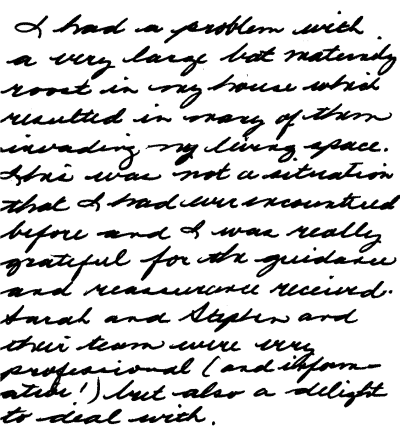 I had a problem with
a very large bat maternity
roost in my house which
resulted in many of them
invading my living space.
This was not a situation
that I had ever encountered
before and I was really
grateful for the guidance
and reassurance received.
Sarah and Stephen and
their team were very
professional (and inform-
ative!) but also a delight
to deal with.